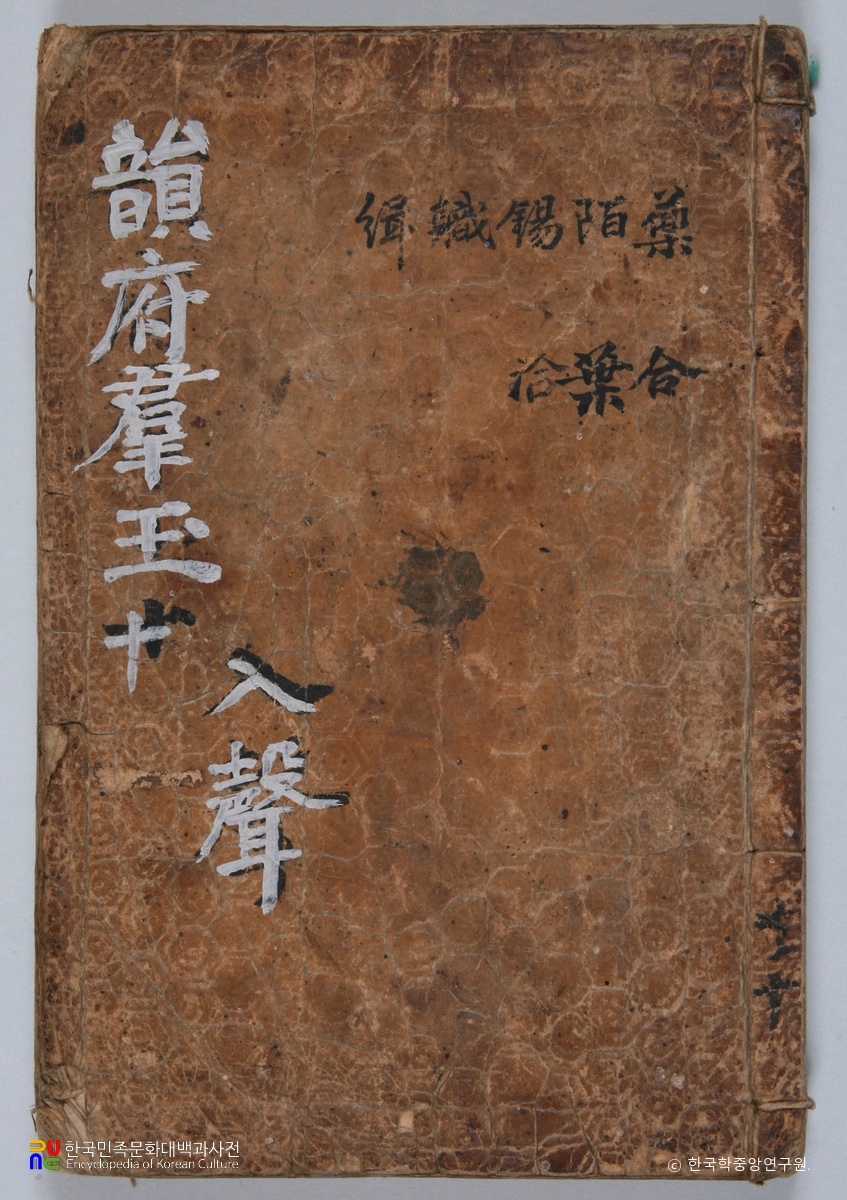 藥陌錫職緝
合葉洽
韻府羣玉十
入聲
共十
한국민족문화대백과사전
Encyclopedia of Korean Culture
ⓒ 한국학중앙연구원.